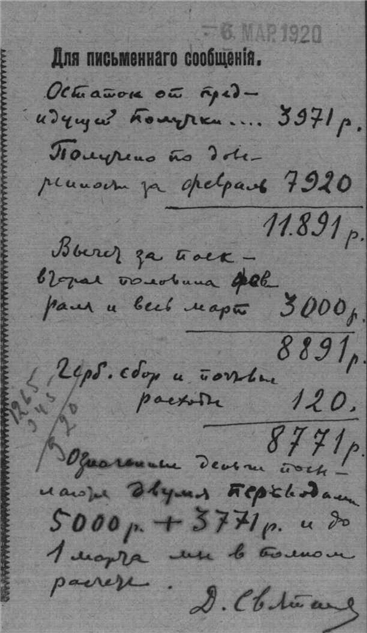 - 6 МАР. 1920
Для письменнаго сообщенія.
Остаток от пред-
идущей получки.... 3971 р.
Получено по дове-
ренности за февраль 7920
11.891 р.
Вычет за
вторая половина фев
раля и весь март 3000 р.
8891 р.
Герб. сбор и почтовые
расходы 120.
8771 р.
1265
345
920
Означенные деньги посы-
лаются двумя переводами
5000 р. + 3771 р. и до
1 марта мы в полном
расчете.
Д.